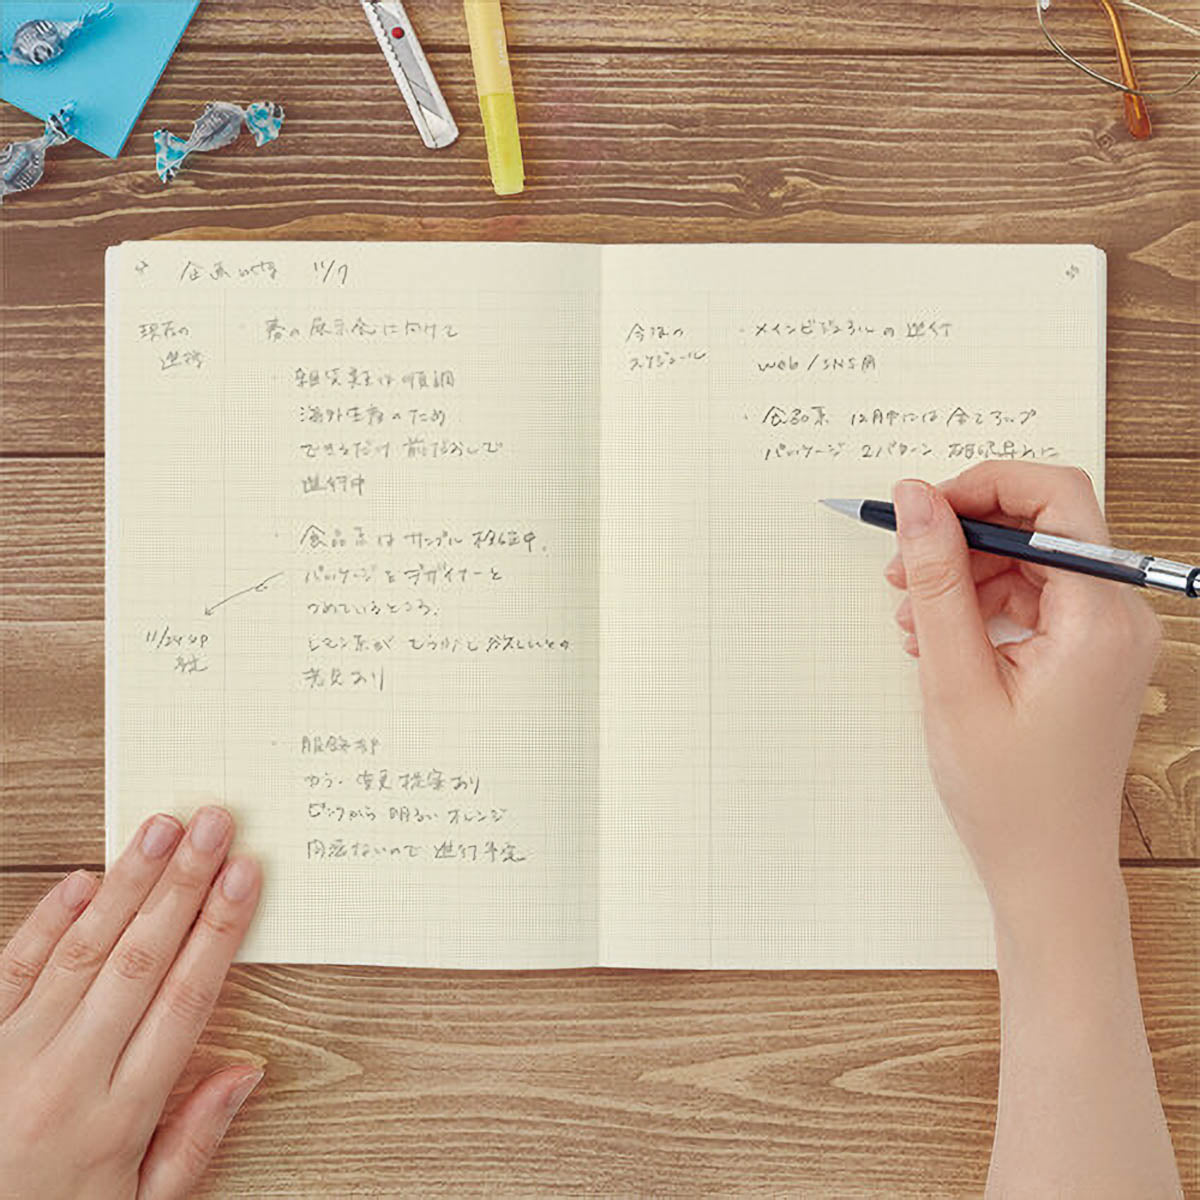 企画 11/7
現在の
進捗
・春の展示会に向けて
・雑貨類は順調
海外生産のため
できるだけ前だおしで
進行中
・食品系はサンプル検証中.
パッケージをデザイナーと
つめているところ.
11/24 up
予定
レモン系がもう少し欲しいとの
意見あり
・服飾
カラー変更提案あり
ピンクから明るいオレンジ
問題ないので進行予定
今後の
スケジュール
・メインビジュアルの進行
web/SNS用
・食品系 12月中には全てアップ
パッケージ 2パターン